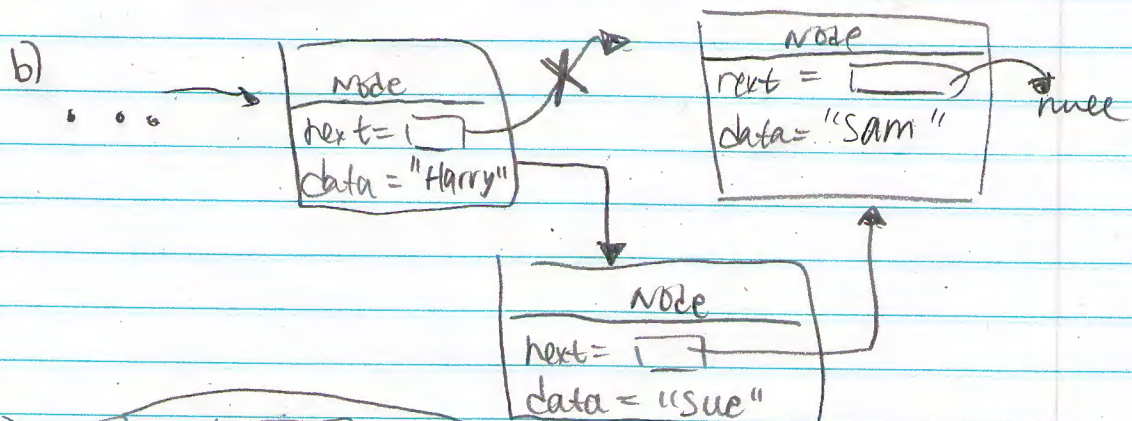 b)
...
Node
next =
data = "Harry"
Node
next =
data = "Sam"
null
Node
next =
data = "Sue"